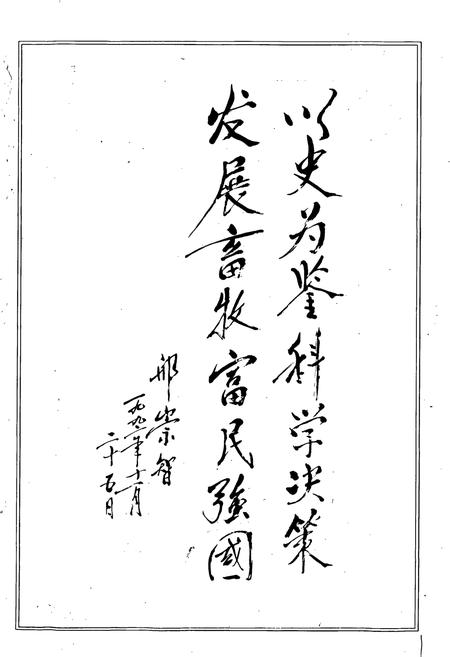 以史为鉴科学决策
发展畜牧富民强國
邢崇智
一九九一年十一月
二十五日